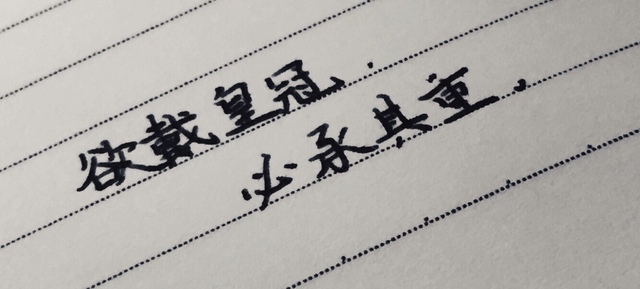 欲戴皇冠.
必承其重.